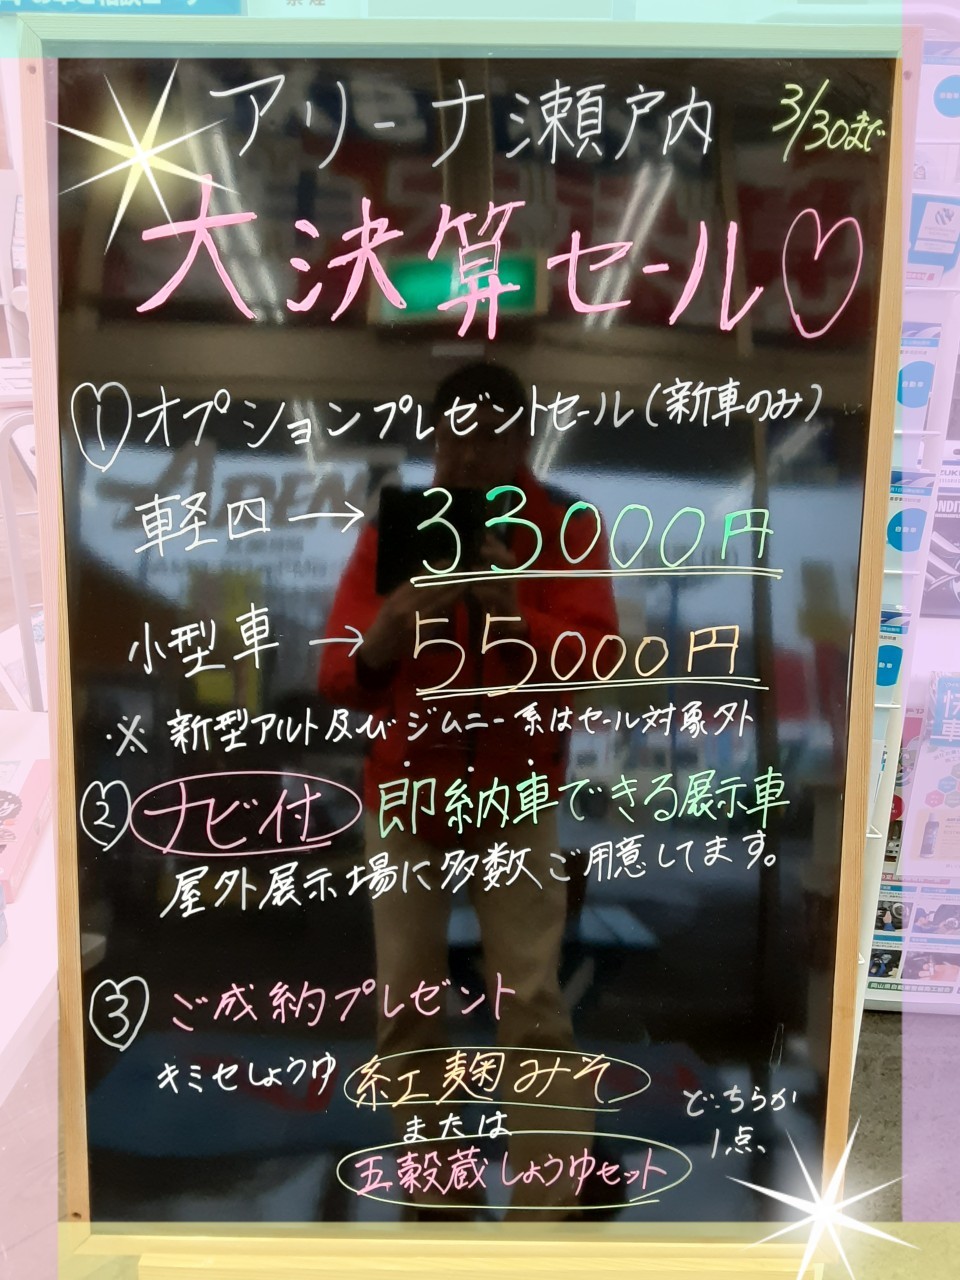 アリーナ瀬戸内
3/30まで
大決算セール♡
① オプションプレゼントセール(新車のみ)
軽四 → 33000円
小型車 → 55000円
※ 新型アルト及びジムニー系はセール対象外
② ナビ付 即納車できる展示車
屋外展示場に多数ご用意してます。
③ ご成約プレゼント
キミセしょうゆ 紅麹みそ
または
五穀蔵しょうゆセット
どちらか
1点